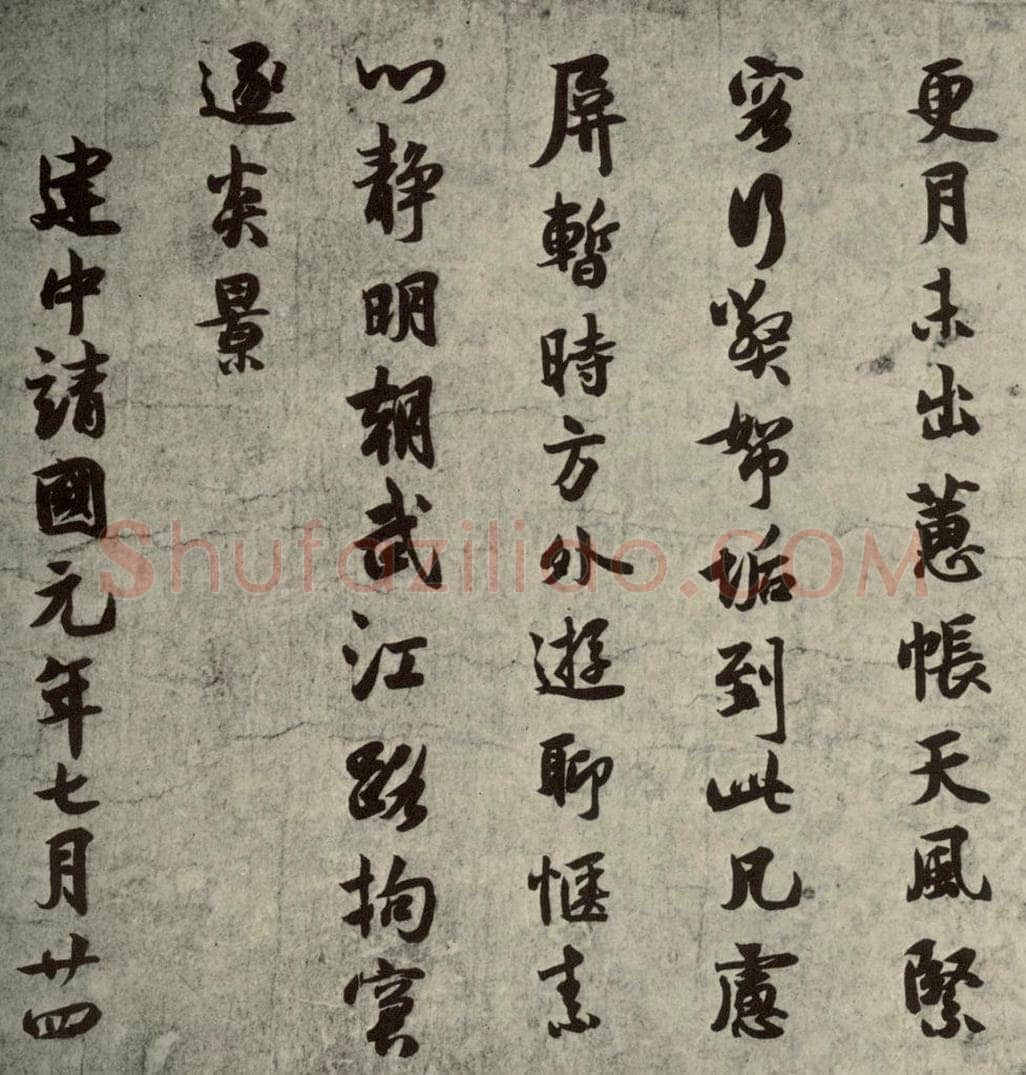 更月未出蕙帳天風緊
客行垢到此凡慮
屏暫時方外遊聊愜素
心静明朝武江路拘窘
逐炎景
建中靖國元年七月廿四
Shufaziliao.COM